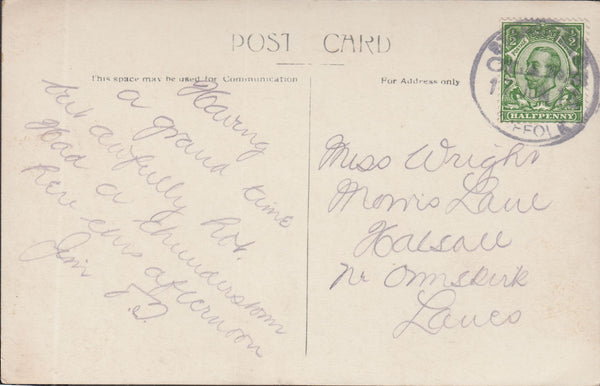 POST CARD
This space may be used for Communication
For Address only
HALFPENNY
Having
a grand time
but awfully hot.
Had a thunderstorm
here this afternoon
Jim
Miss Wright
Morris Lane
Halsall
Nr Ormskirk
Lancs